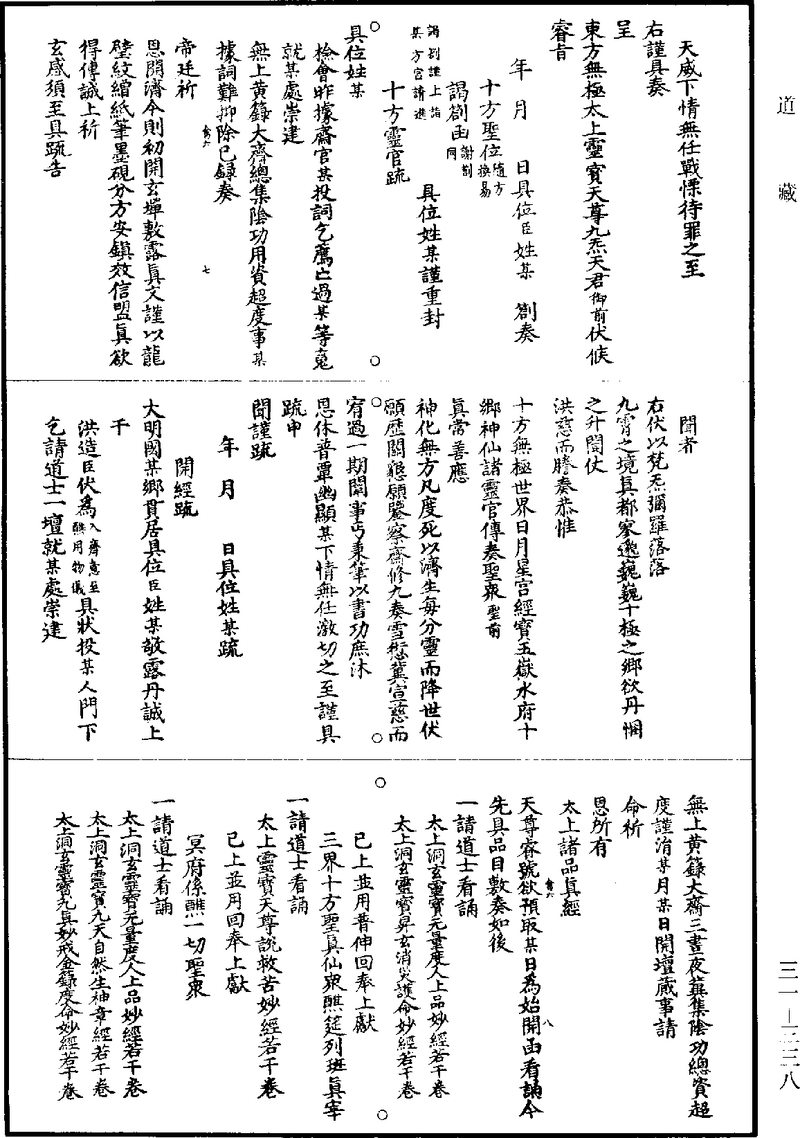 道藏
天威下情無任戰慄待罪之至
右謹具奏
呈
東方無極太上靈寶天尊九炁天君御前伏候
睿旨
年 月 日具位臣姓某 劄奏
十方聖位隨方換易
謁劄函謝劄同 具位姓某謹重封
謁劄謹上詣某方宮請進
十方靈官疏
具位姓某
檢會昨據齋官某投詞乞薦亡過某等䰟
就某處崇建
無上黃籙大齋總集陰功用資超度事某
據詞難抑除已錄奏
帝廷祈
恩開濟今則初開玄壇敷露真文謹以龍
璧紋繒紙筆墨硯分方安鎮效信盟真欲
得傳誠上祈
玄感須至具疏告
七
聞者
右伏以梵炁彌羅落落
九霄之境真都寥邈巍巍十極之鄉欲丹悃
之升聞仗
洪慈而謄奏恭惟
十方無極世界日月星宫經寶五嶽水府十
鄉神仙諸靈官傳奏聖衆聖前
真常善應
神化無方凡度死以濟生每分靈而降世伏
願歷關懇願鑒察齋修九奏雪愆冀宣慈而
宥過一期聞事丐秉筆以書功庶沐
恩休普覃幽顯某下情無任激切之至謹具
疏申
聞謹疏
年 月 日具位姓某疏
開經疏
大明國某鄉貫居具位臣姓某敬露丹誠上
干
洪造臣伏為入齋意至醮用物儀具狀投某人門下
乞請道士一壇就某處崇建
無上黃籙大齋三晝夜蓂集陰功總資超
度謹涓某月某日開壇蕆事請
命祈
恩所有
太上諸品真經
天尊睿號欲預取某日為始開函看誦今
先具品目數奏如後
八
一請道士看誦
太上洞玄靈寶元量度人上品妙經若干卷
太上洞玄靈寶昇玄消災護命妙經若干卷
已上並用普伸回奉上獻
三界十方聖真仙衆醮筵列班真宰
一請道士看誦
太上靈寶天尊說救苦妙經若干卷
已上並用回奉上獻
冥府係醮一切聖衆
一請道士看誦
太上洞玄靈寶元量度人上品妙經若干卷
太上洞玄靈寶九天自然生神章經若干卷
太上洞玄靈寶九真妙戒金籙度命妙經若干卷
三一—二三八